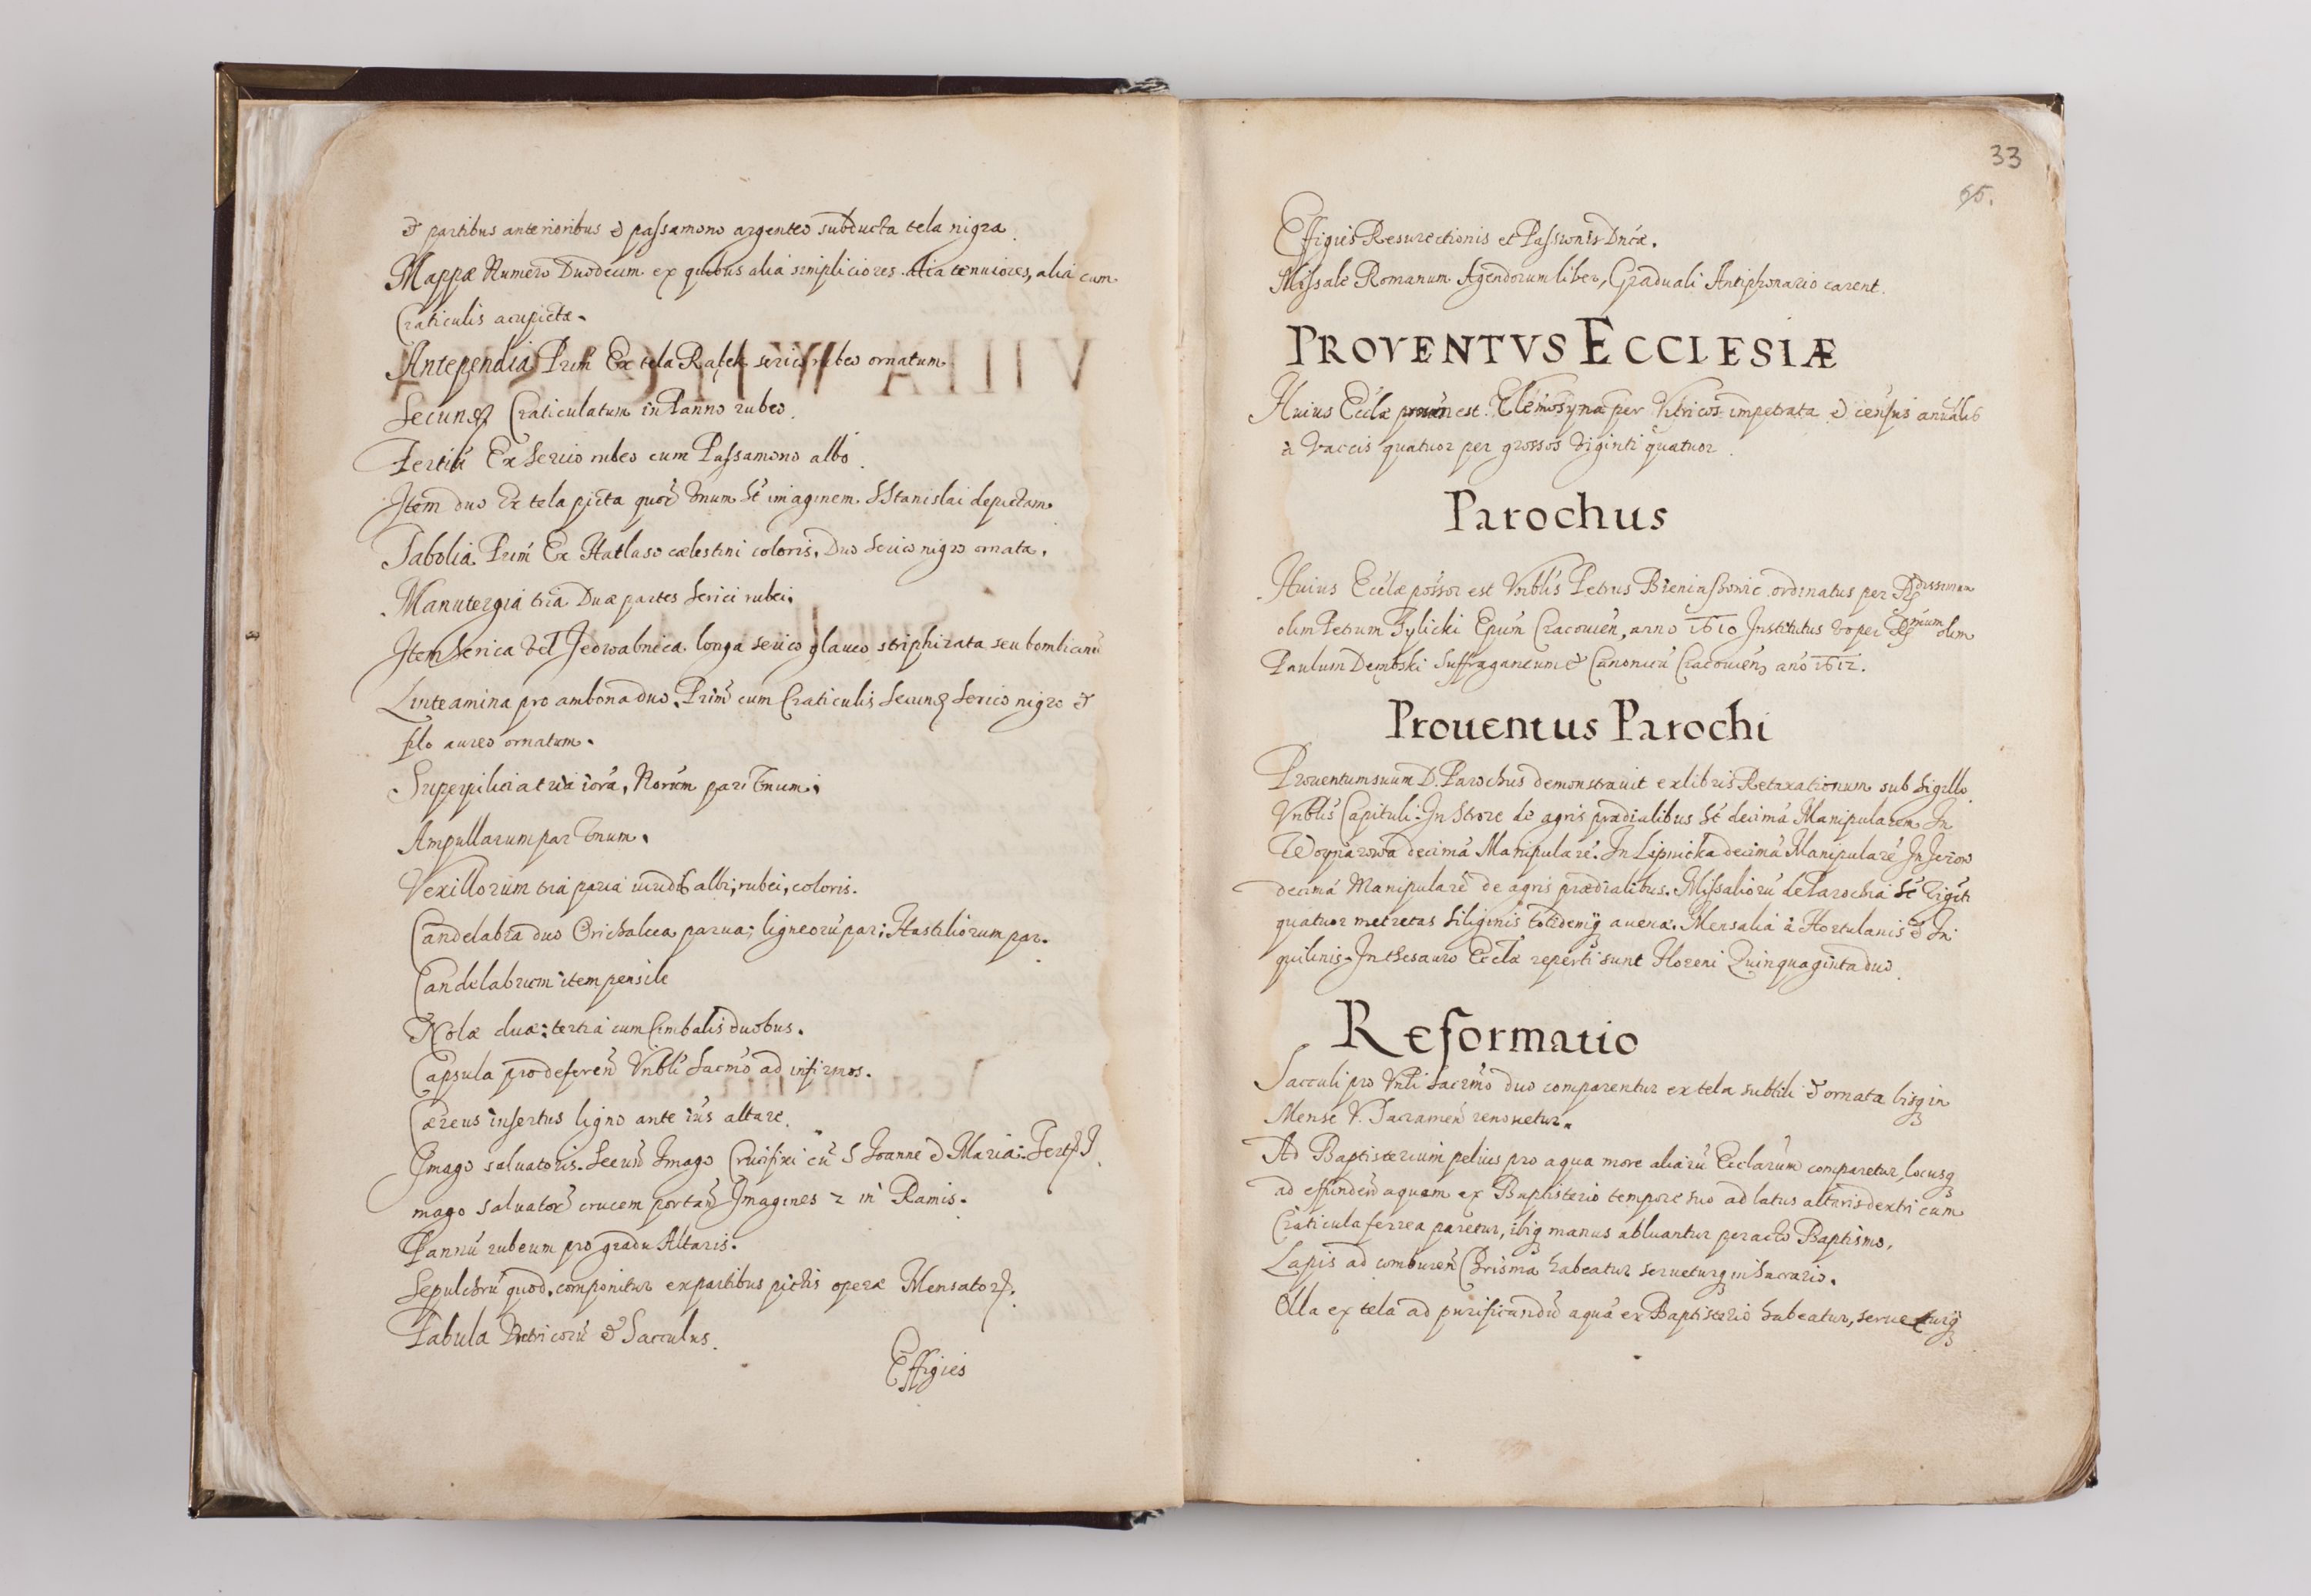 & partibus anterioribus & passamono argenteo subducta tela nigra.
Mappæ Numero Duodecim ex quibus alia simpliciores alia tenuiores, alia cum
Craticulis acupicta.
Antependia Prim Ex tela Rąbek serico rubeo ornatum
Craticulatum in Panno rubeo.
Tertiũ Ex Serico rubeo cum Passamono albo.
Item duo Ex tela picta quorũ Vnum hẽt imaginem S Stanislai depictam.
Prim Ex Hatlaso cælestini coloris. Duo Serico nigro ornata.
Manutergia tria Duæ partes Serici rubei.
Item Serica vel Jedwabnica longa serico glauco
Linteamina pro ambona duo. Primũ cum Craticulis Serico nigro &
filo aureo ornatum.
par Vnum.
Ampullarum par Vnum.
Vexillorum tria paria albi, rubei, coloris.
Candelabra duo Orichalcea parua; ligneorũ par; Hastiliorum par.
Candelabrum item pensile
Nolæ duæ: tertia cum Cimbalis duobus.
Capsula pro deferen̄ Vnbli Sacmõ ad infirmos.
Cæreus insertus ligno ante altare.
Imago saluatoris. Imago Crucifixi cũ S Joanne & Maria. I
mago saluator̃ crucem portan̄ Imagines 2 in Ramis.
Pannũ rubeum pro gradu Altaris.
Sepulchrũ quod componitur ex partibus pictis opera
Tabula Vitricorũ & Sacculus.
Effigies
33
65.
Effigies Resurectionis et Passionis Dnĩcæ.
Missale Romanum Agendorum liber, Graduali Antiphonario carent.
PROVENTVS ECCLESIÆ
Huius Ecclæ est Elemosyna per Vitricos impetrata & census anuãlis
à Vaccis quatuor per grossos Viginti quatuor.
Parochus
Huius Ecclæ posšor est Vnblis Petrus ordinatus per
olim Petrum Tylicki Epũm Cracouien̄, anno 1610 Institutus olim
Paulum Dembski Suffraganeum & Canonicũ Cracouien̄ anõ 1612.
Prouentus Parochi
Prouentum suum D. Parochus demonstrauit ex libris Retaxationum sub Sigillo
Vnblis Capituli. In Stroze de agris prædialibus hẽt decimã Manipularem In
Woynarowa decimã Manipularẽ. In Lipnicka decimã Manipularẽ In
decimã Manipularẽ de agris prædialibus. Missaliorũ de Parochia hẽt Viginti
quatuor metretas Siliginis totidemq̃ auenæ. Mensalia à Hortulanis & In
quilinis. In thesauro Ecclæ reperti sunt Floreni Quinquaginta duo.
Reformatio
Sacculi pro Vnli Sacrmõ duo comparentur ex tela subtili & ornata bisq̃ in
Mense V. Sacramen̄ renouetur.
Ad Baptisterium peluis pro aqua more aliarũ Ecclarum comparetur, locusq̃
ad effunden̄ aquam ex Baptisterio tempore suo ad latus altaris dextri cum
Craticula ferrea paretur, ibiq̃ manus abluantur peracto Baptismo.
Lapis ad comburen̄ Chrisma habeatur serueturq̃ in Sacrario.
Olla ex tela ad purificandũ aquã ex Baptisterio habeatur, serueturq̃